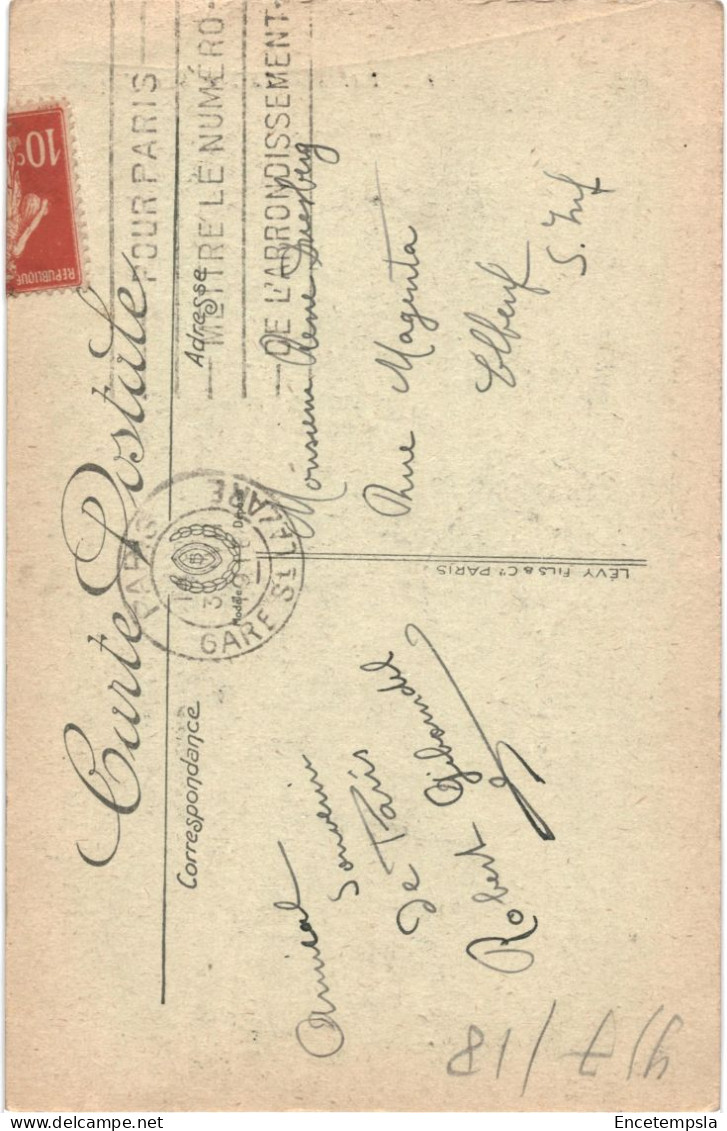 Carte Postale
Correspondance
Adresse
10c
REPUBLIQUE
PARIS
GARE ST LAZARE
3
Modèle Déposé
POUR PARIS
METTRE LE NUMÉRO
DE L'ARRONDISSEMENT
Amical
souvenir
de Paris
Robert
Monsieur René
Rue Magenta
Elbeuf
S. Inf
LÉVY FILS & Cie PARIS
4/7/18
Encetempsla